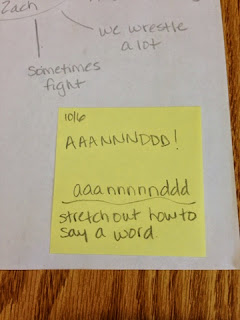 Zach
we wrestle
a lot
sometimes
fight
10/6
AAANNNDDD!
aaannnnnddd
stretch out how to
say a word.